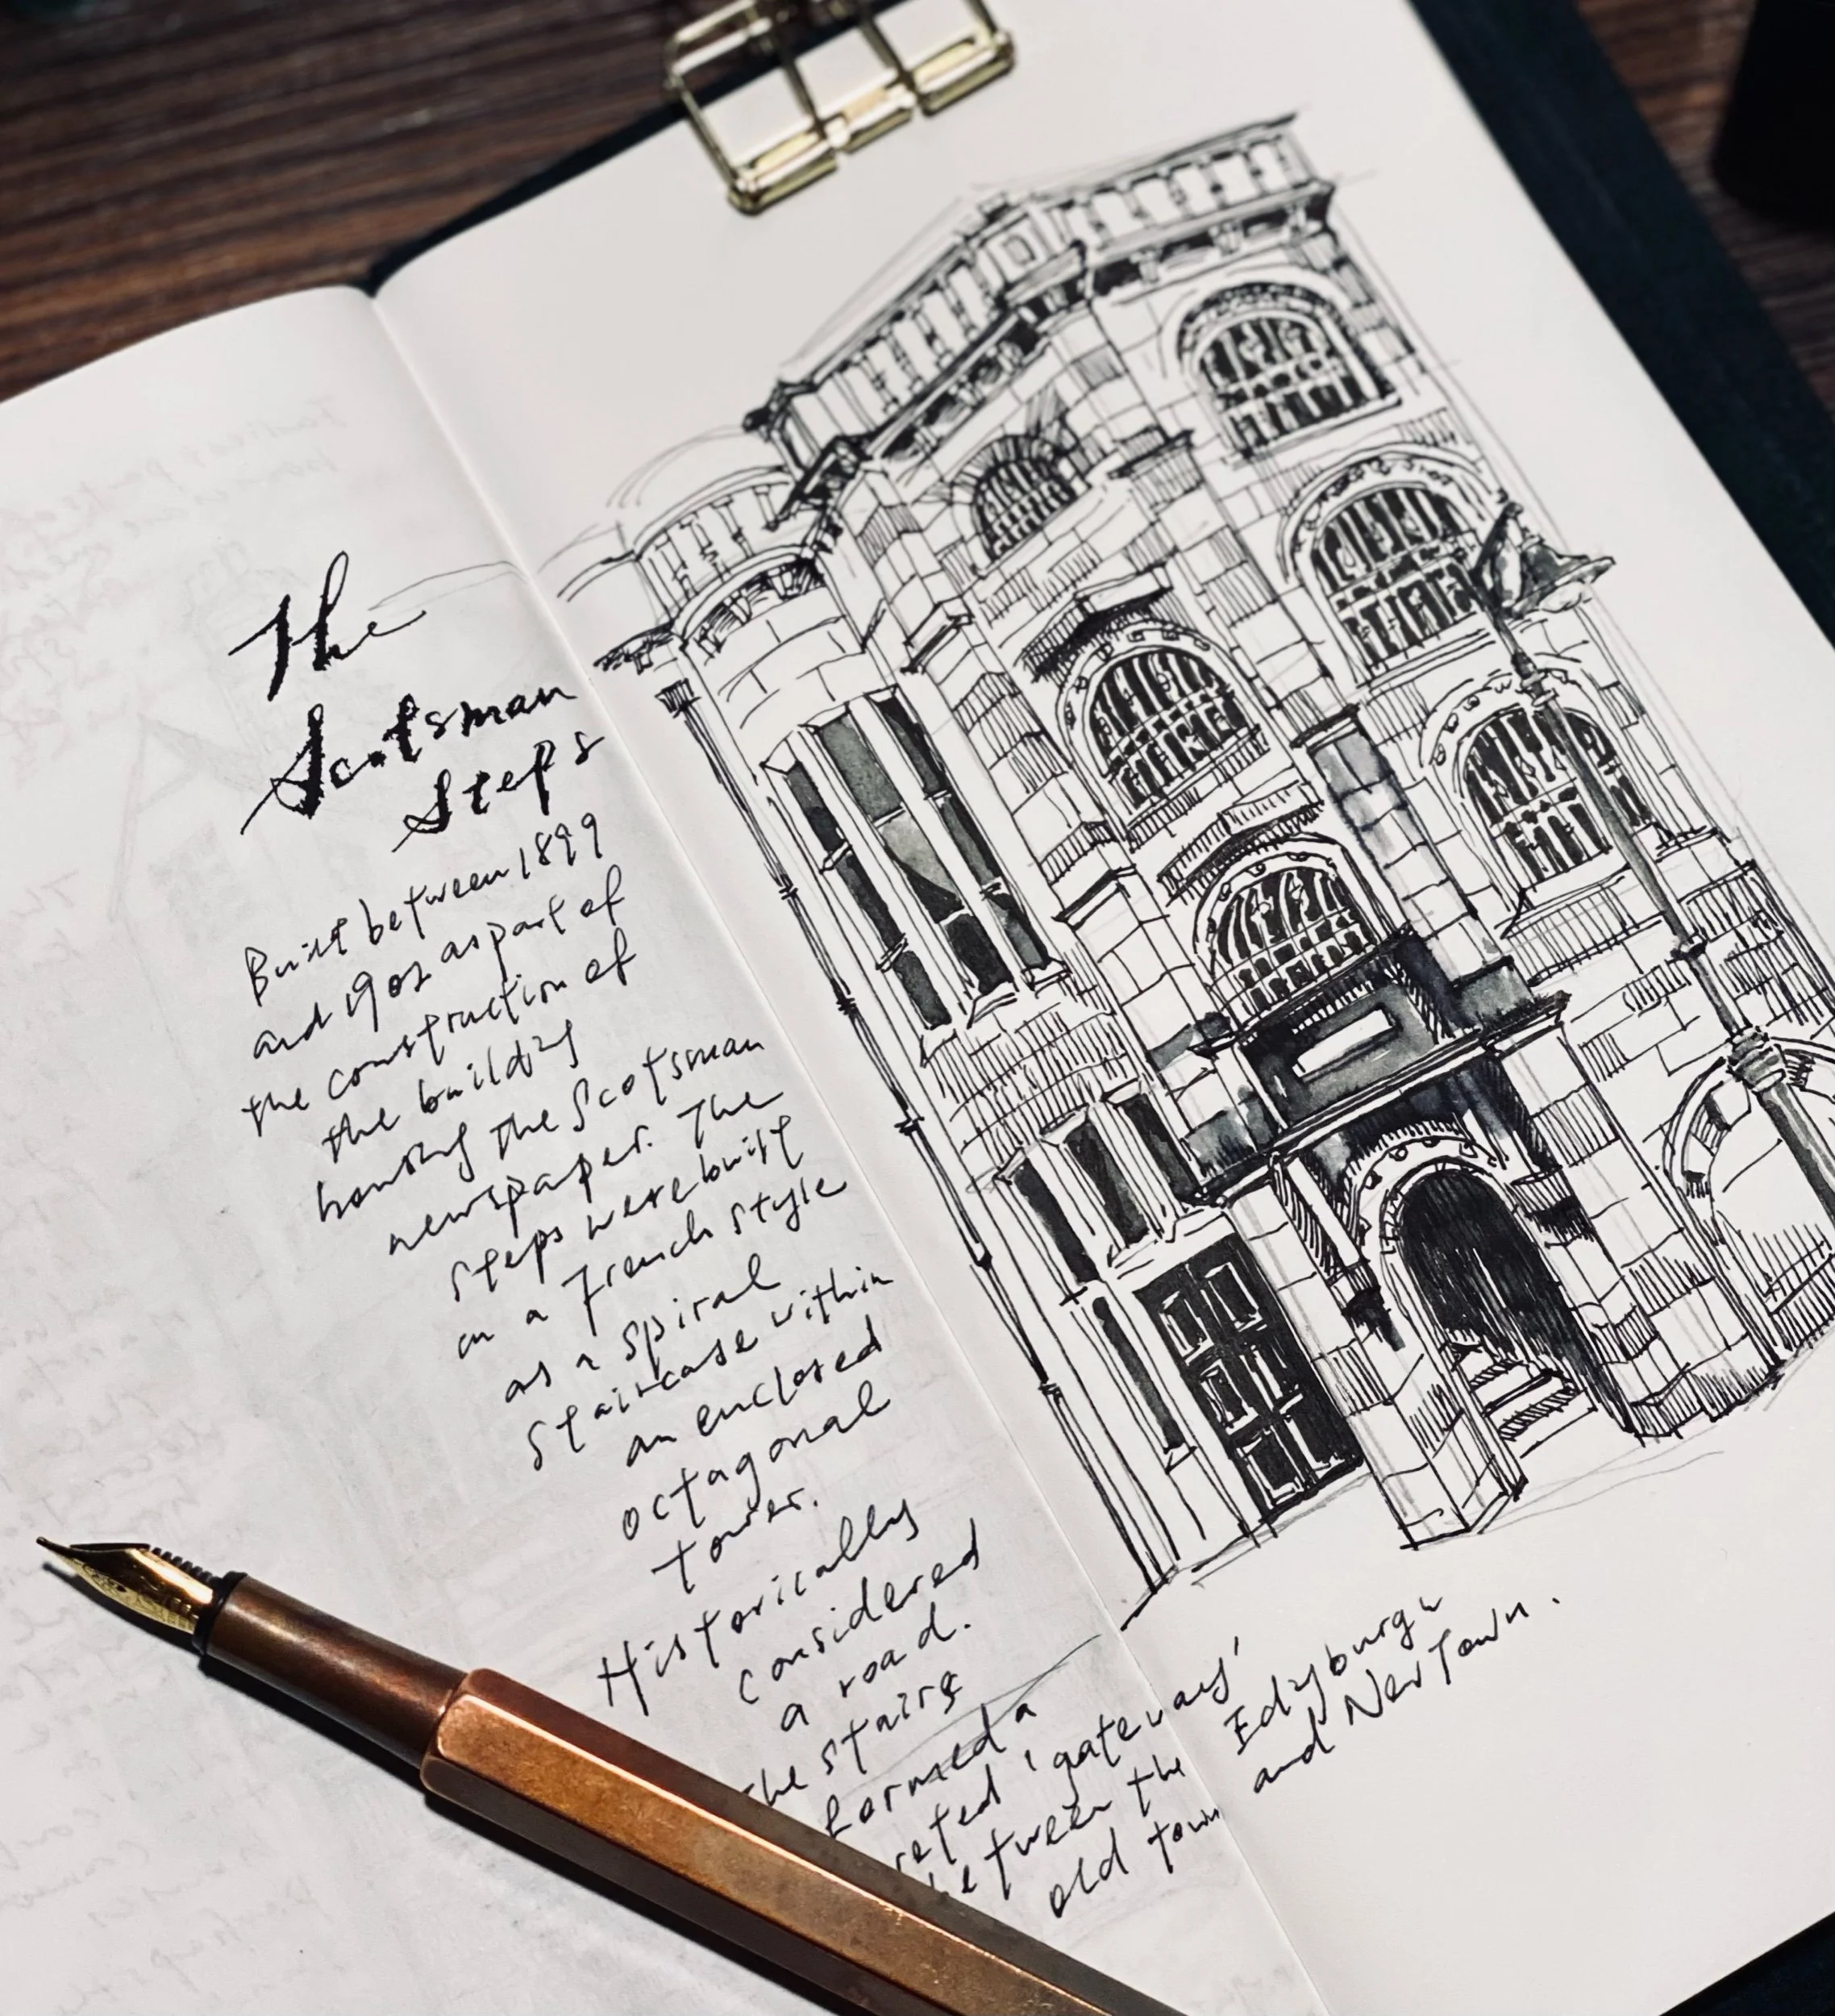 The
Scotsman
Steps
Built between 1899
and 1902 as part of
the construction of
the building
housing the Scotsman
newspaper. The
steps were built
in a French style
as a spiral
staircase within
an enclosed
octagonal
tower.
Historically
considered
a road.
the stairs
formed a
gateway'
between the Edinburgh
old town and New Town.